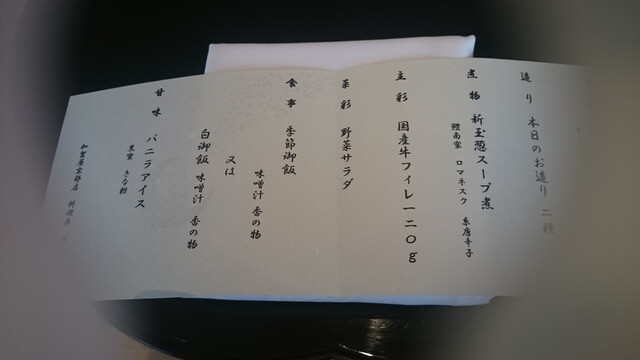 造り 本日のお造り 二種
煮物 新玉葱スープ煮
鰹南蛮 ロマネスク 糸唐辛子
主彩 国産牛フィレ一二〇g
菜彩 野菜サラダ
食事 季節御飯
味噌汁 香の物
又は
白御飯 味噌汁 香の物
甘味 バニラアイス
黒蜜 きな粉
加賀屋京都店 料理長